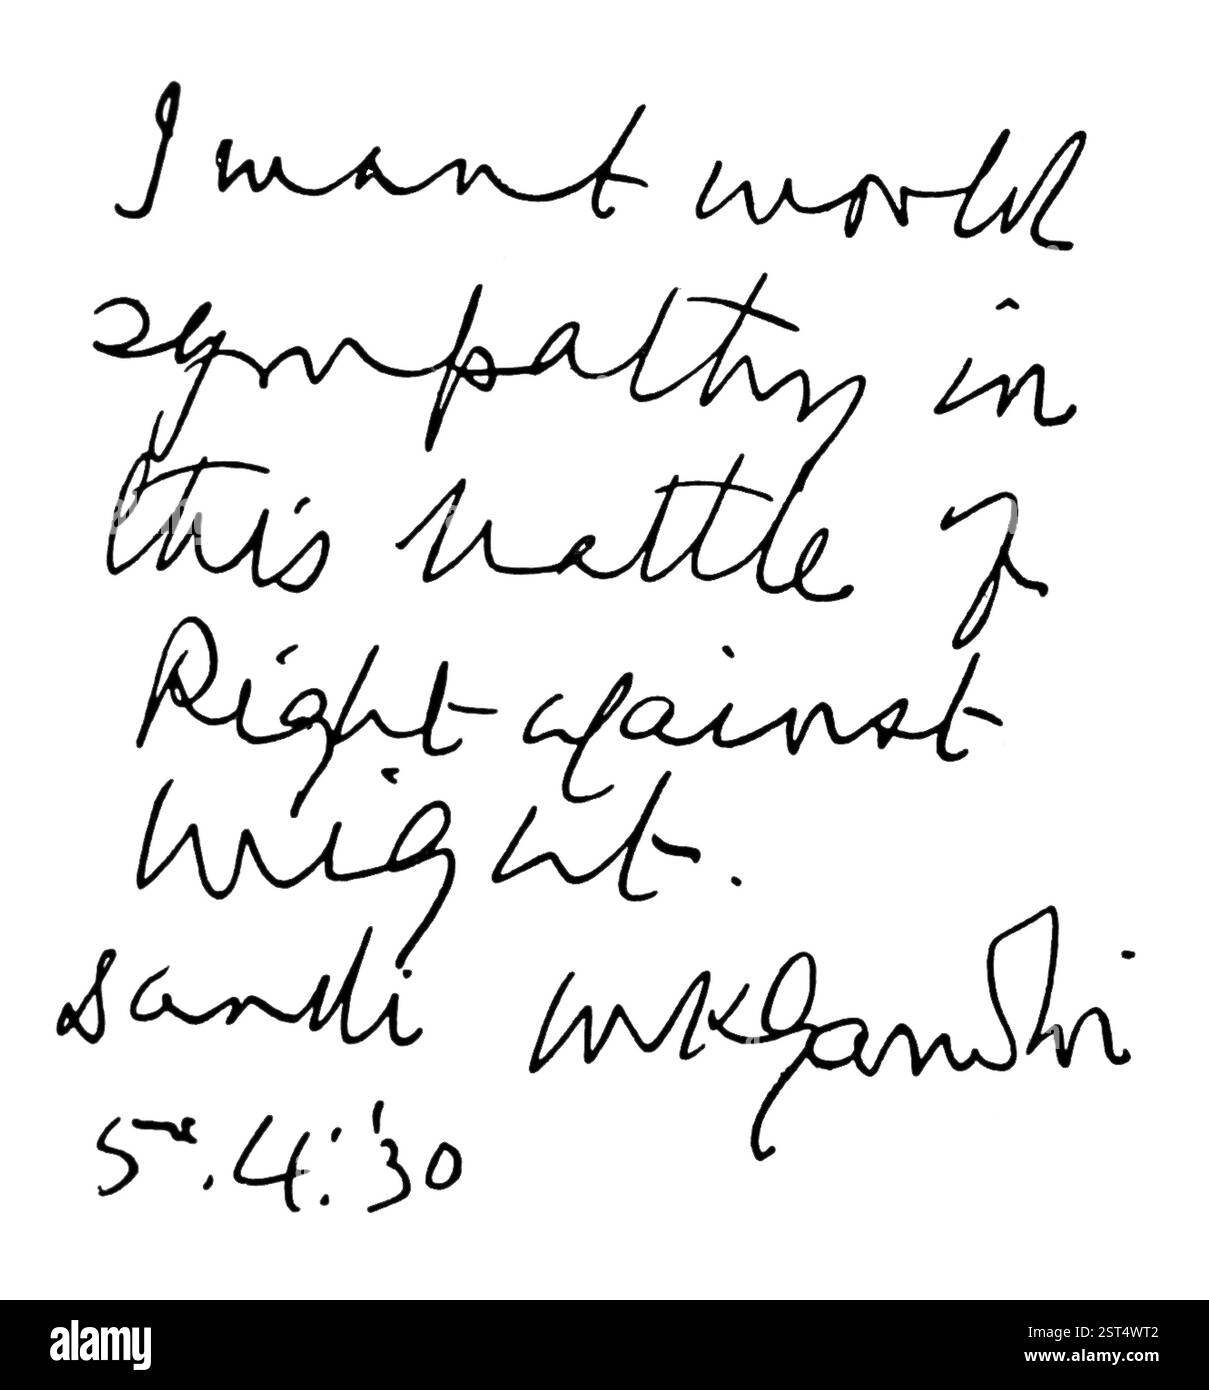 I want world
sympathy in
this battle of
Right against
might.
Sandi MKGandhi
5.4.'30
alamy
Image ID: 2ST4WT2
www.alamy.com